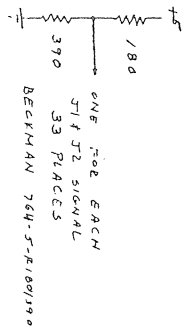 +5
180
390
ONE FOR EACH
J1 & J2 SIGNAL
33 PLACES
BECKMAN 764-5-R180/390